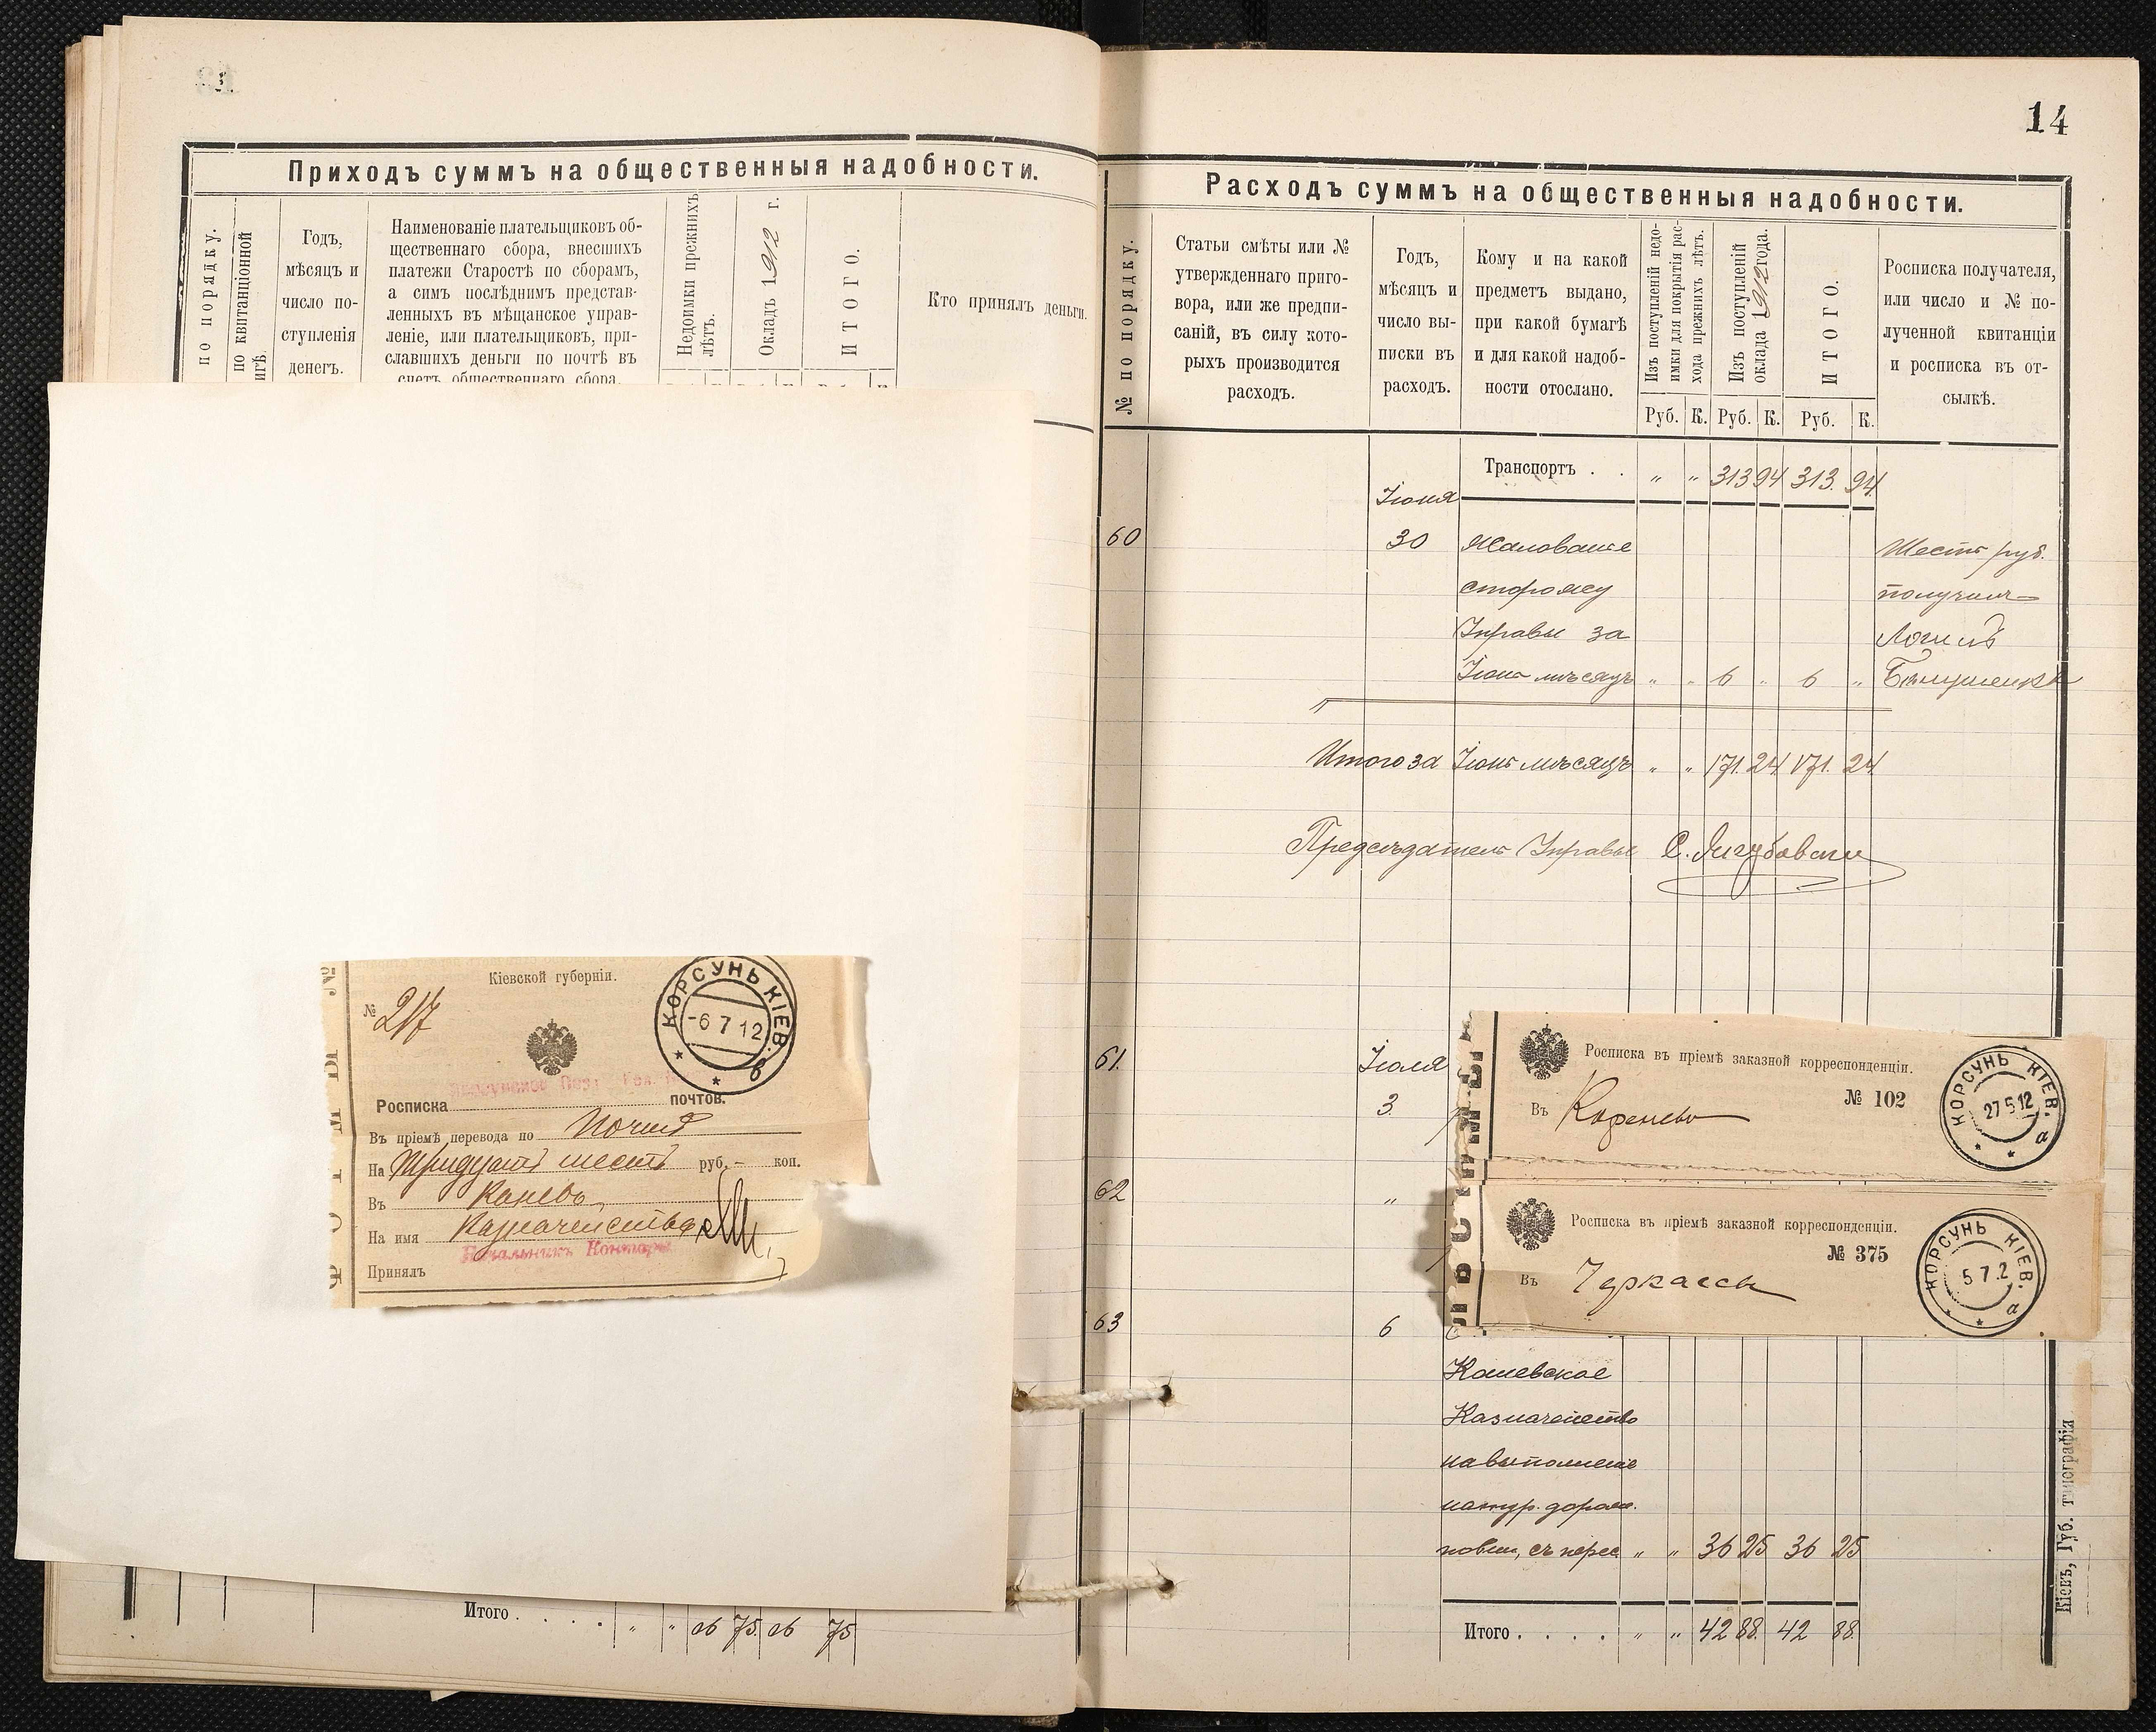 Приходъ суммъ на общественныя надобности.
по порядку.
по квитанціонной
игѣ.
Годъ,
мѣсяцъ и
число по-
ступленія
денегъ.
Наименованіе плательщиковъ об-
щественнаго сбора, внесшихъ
платежи Старостѣ по сборамъ,
а симъ послѣднимъ представ-
ленныхъ въ мѣщанское управ-
леніе, или плательщиковъ, при-
славшихъ деньги по почтѣ въ
счетъ общественнаго сбора.
Недоимки прежнихъ
лѣтъ.
Окладъ 1912 г.
ИТОГО.
Кто принялъ деньги.
Кіевской губерніи.
№ 217
КОРСУНЬ КІЕВ.
-6 7 12
в
Росписка почтов.
Въ пріемѣ перевода по Почтѣ
На Тридцать шесть руб. - коп.
Въ Каневъ
На имя Казначейства
Начальникъ Конторы
Принялъ
Итого . . . . " " 26 75 26 75
14
Расходъ суммъ на общественныя надобности.
№ по порядку.
Статьи смѣты или №
утвержденнаго приго-
вора, или же предпи-
саній, въ силу кото-
рыхъ производится
расходъ.
Годъ,
мѣсяцъ и
число вы-
писки въ
расходъ.
Кому и на какой
предметъ выдано,
при какой бумагѣ
и для какой надоб-
ности отослано.
Изъ поступленій недо-
имки для покрытія рас-
хода прежнихъ лѣтъ.
Изъ поступленій
оклада 1912 года.
ИТОГО.
Росписка получателя,
или число и № по-
лученной квитанціи
и росписка въ от-
сылкѣ.
Руб. К. Руб. К. Руб. К.
Транспортъ . . " " 313 94 313. 94.
Іюня
60 30 Жалованіе Шесть руб.
сторожу получилъ
Управы за
Іюнь мѣсяцъ " " 6 " 6 "
Итого за Іюнь мѣсяцъ " " 171. 24 171. 24.
Предсѣдатель Управы
61. Іюля
3
Росписка въ пріемѣ заказной корреспонденціи.
№ 102
Въ
КОРСУНЬ КІЕВ.
27 5 12
а
62 "
Росписка въ пріемѣ заказной корреспонденціи.
№ 375
Въ Черкассы
КОРСУНЬ КІЕВ.
5 7 2
а
63 6
Каневское
Казначейство
на выполненіе
натур. дорож.
повин, съ перес " " 36 25 36 25
Итого . . . . " " 42 88. 42 88.
Кіевъ, Губ. типографія